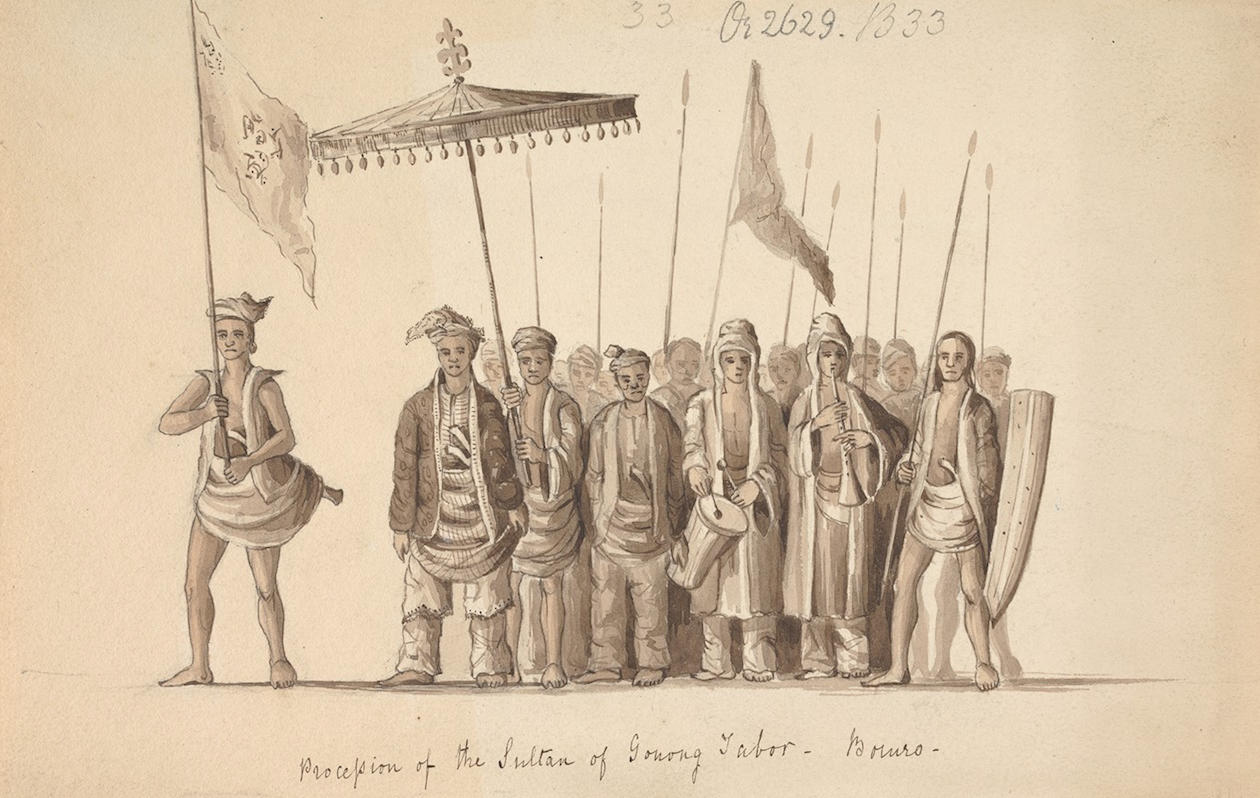 33 Or 2629. B33
Proceſsion of the Sultan of Gonong Tabor - Borneo -